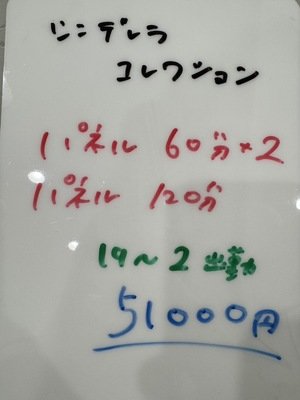 シンデレラ
コレクション
パネル 60分×2
パネル 120分
19〜2 出勤
51000円